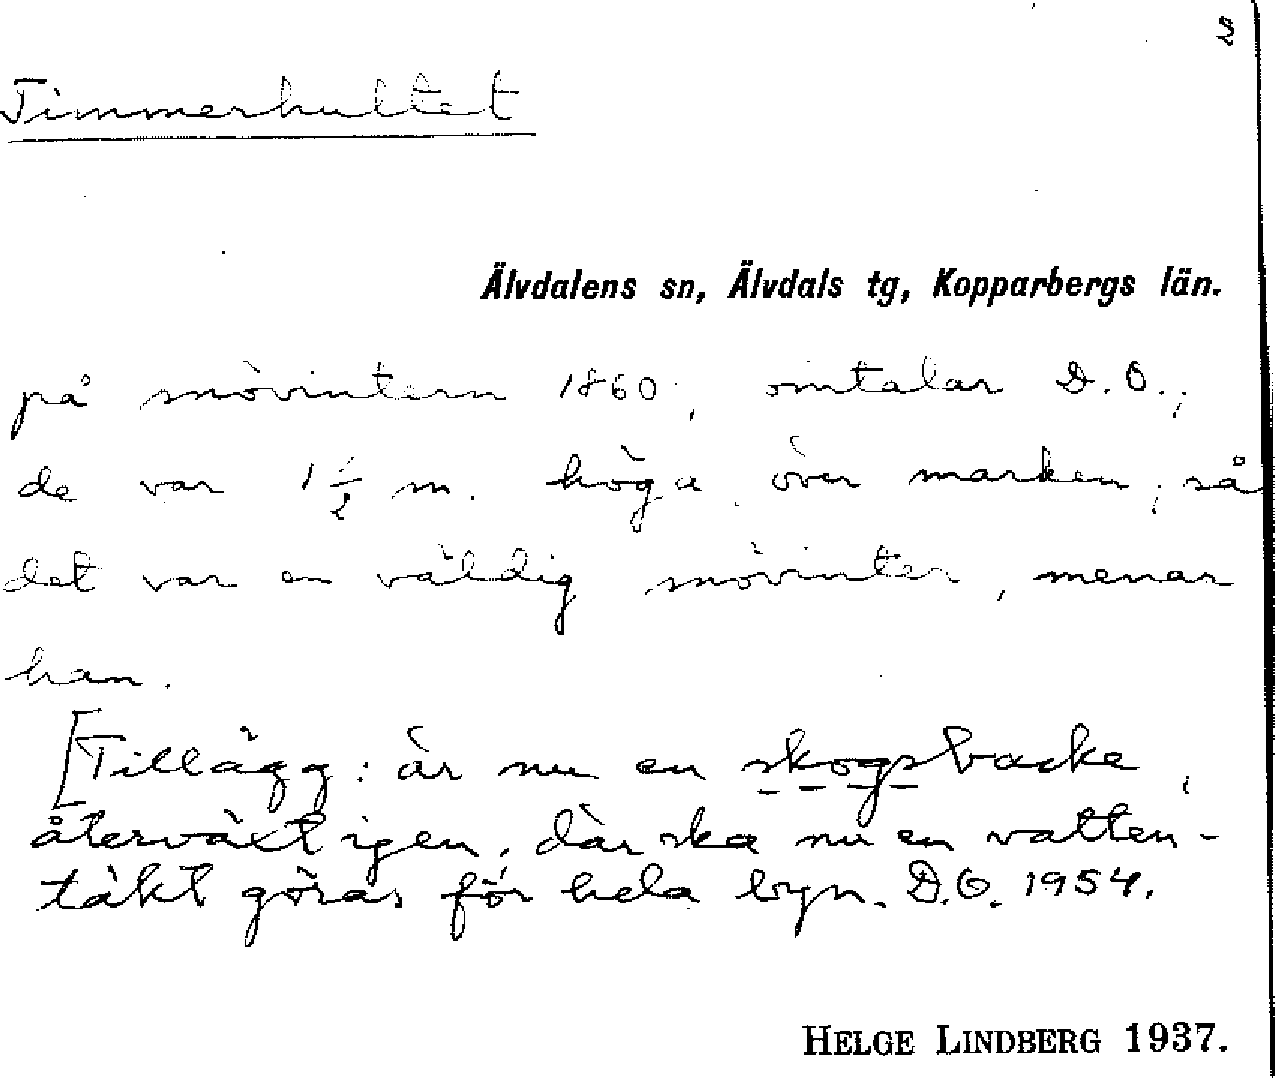 2
Timmerhultet
Älvdalens sn, Älvdals tg, Kopparbergs län.
på snövintern 1860, omtalar D.O.;
de var 1 1/2 m. höga över marken, så
det var en väldig snövinter, menar
han.
[Tillägg: är nu en skogsbacke,
återväxt igen, där ska nu en vatten-
täkt göras för hela byn. D.O. 1954.
HELGE LINDBERG 1937.